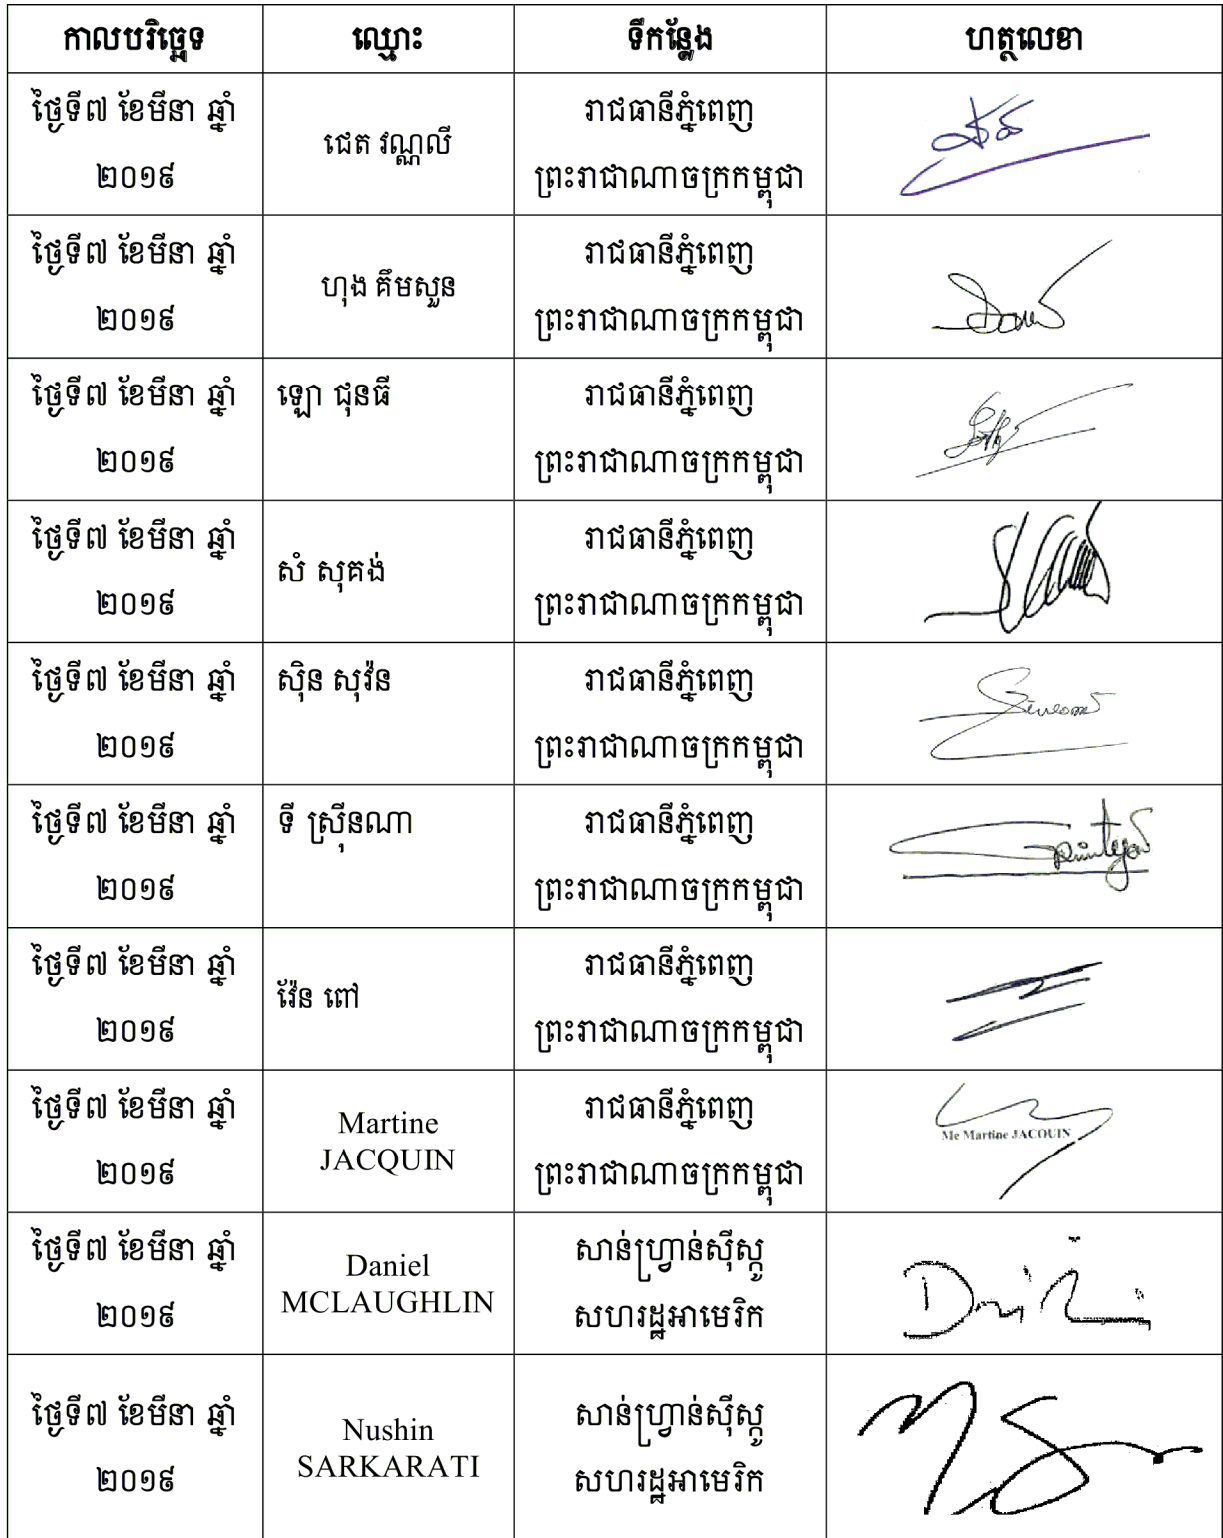 កាលបរិច្ឆេទ ឈ្មោះ ទីកន្លែង ហត្ថលេខា
ថ្ងៃទី៧ ខែមីនា ឆ្នាំ
២០១៩
ជេត វណ្ណលី
រាជធានីភ្នំពេញ
ព្រះរាជាណាចក្រកម្ពុជា
ថ្ងៃទី៧ ខែមីនា ឆ្នាំ
២០១៩
ហុង គឹមសួន
រាជធានីភ្នំពេញ
ព្រះរាជាណាចក្រកម្ពុជា
ថ្ងៃទី៧ ខែមីនា ឆ្នាំ
២០១៩
ឡោ ជុនធី
រាជធានីភ្នំពេញ
ព្រះរាជាណាចក្រកម្ពុជា
ថ្ងៃទី៧ ខែមីនា ឆ្នាំ
២០១៩
សំ សុគង់
រាជធានីភ្នំពេញ
ព្រះរាជាណាចក្រកម្ពុជា
ថ្ងៃទី៧ ខែមីនា ឆ្នាំ
២០១៩
ស៊ិន សុវ៉ន
រាជធានីភ្នំពេញ
ព្រះរាជាណាចក្រកម្ពុជា
ថ្ងៃទី៧ ខែមីនា ឆ្នាំ
២០១៩
ទី ស្រ៊ីនណា
រាជធានីភ្នំពេញ
ព្រះរាជាណាចក្រកម្ពុជា
ថ្ងៃទី៧ ខែមីនា ឆ្នាំ
២០១៩
វ៉ែន ពៅ
រាជធានីភ្នំពេញ
ព្រះរាជាណាចក្រកម្ពុជា
ថ្ងៃទី៧ ខែមីនា ឆ្នាំ
២០១៩
Martine
JACQUIN
រាជធានីភ្នំពេញ
ព្រះរាជាណាចក្រកម្ពុជា
Me Martine JACQUIN
ថ្ងៃទី៧ ខែមីនា ឆ្នាំ
២០១៩
Daniel
MCLAUGHLIN
សាន់ហ្វ្រាន់ស៊ីស្កូ
សហរដ្ឋអាមេរិក
ថ្ងៃទី៧ ខែមីនា ឆ្នាំ
២០១៩
Nushin
SARKARATI
សាន់ហ្វ្រាន់ស៊ីស្កូ
សហរដ្ឋអាមេរិក